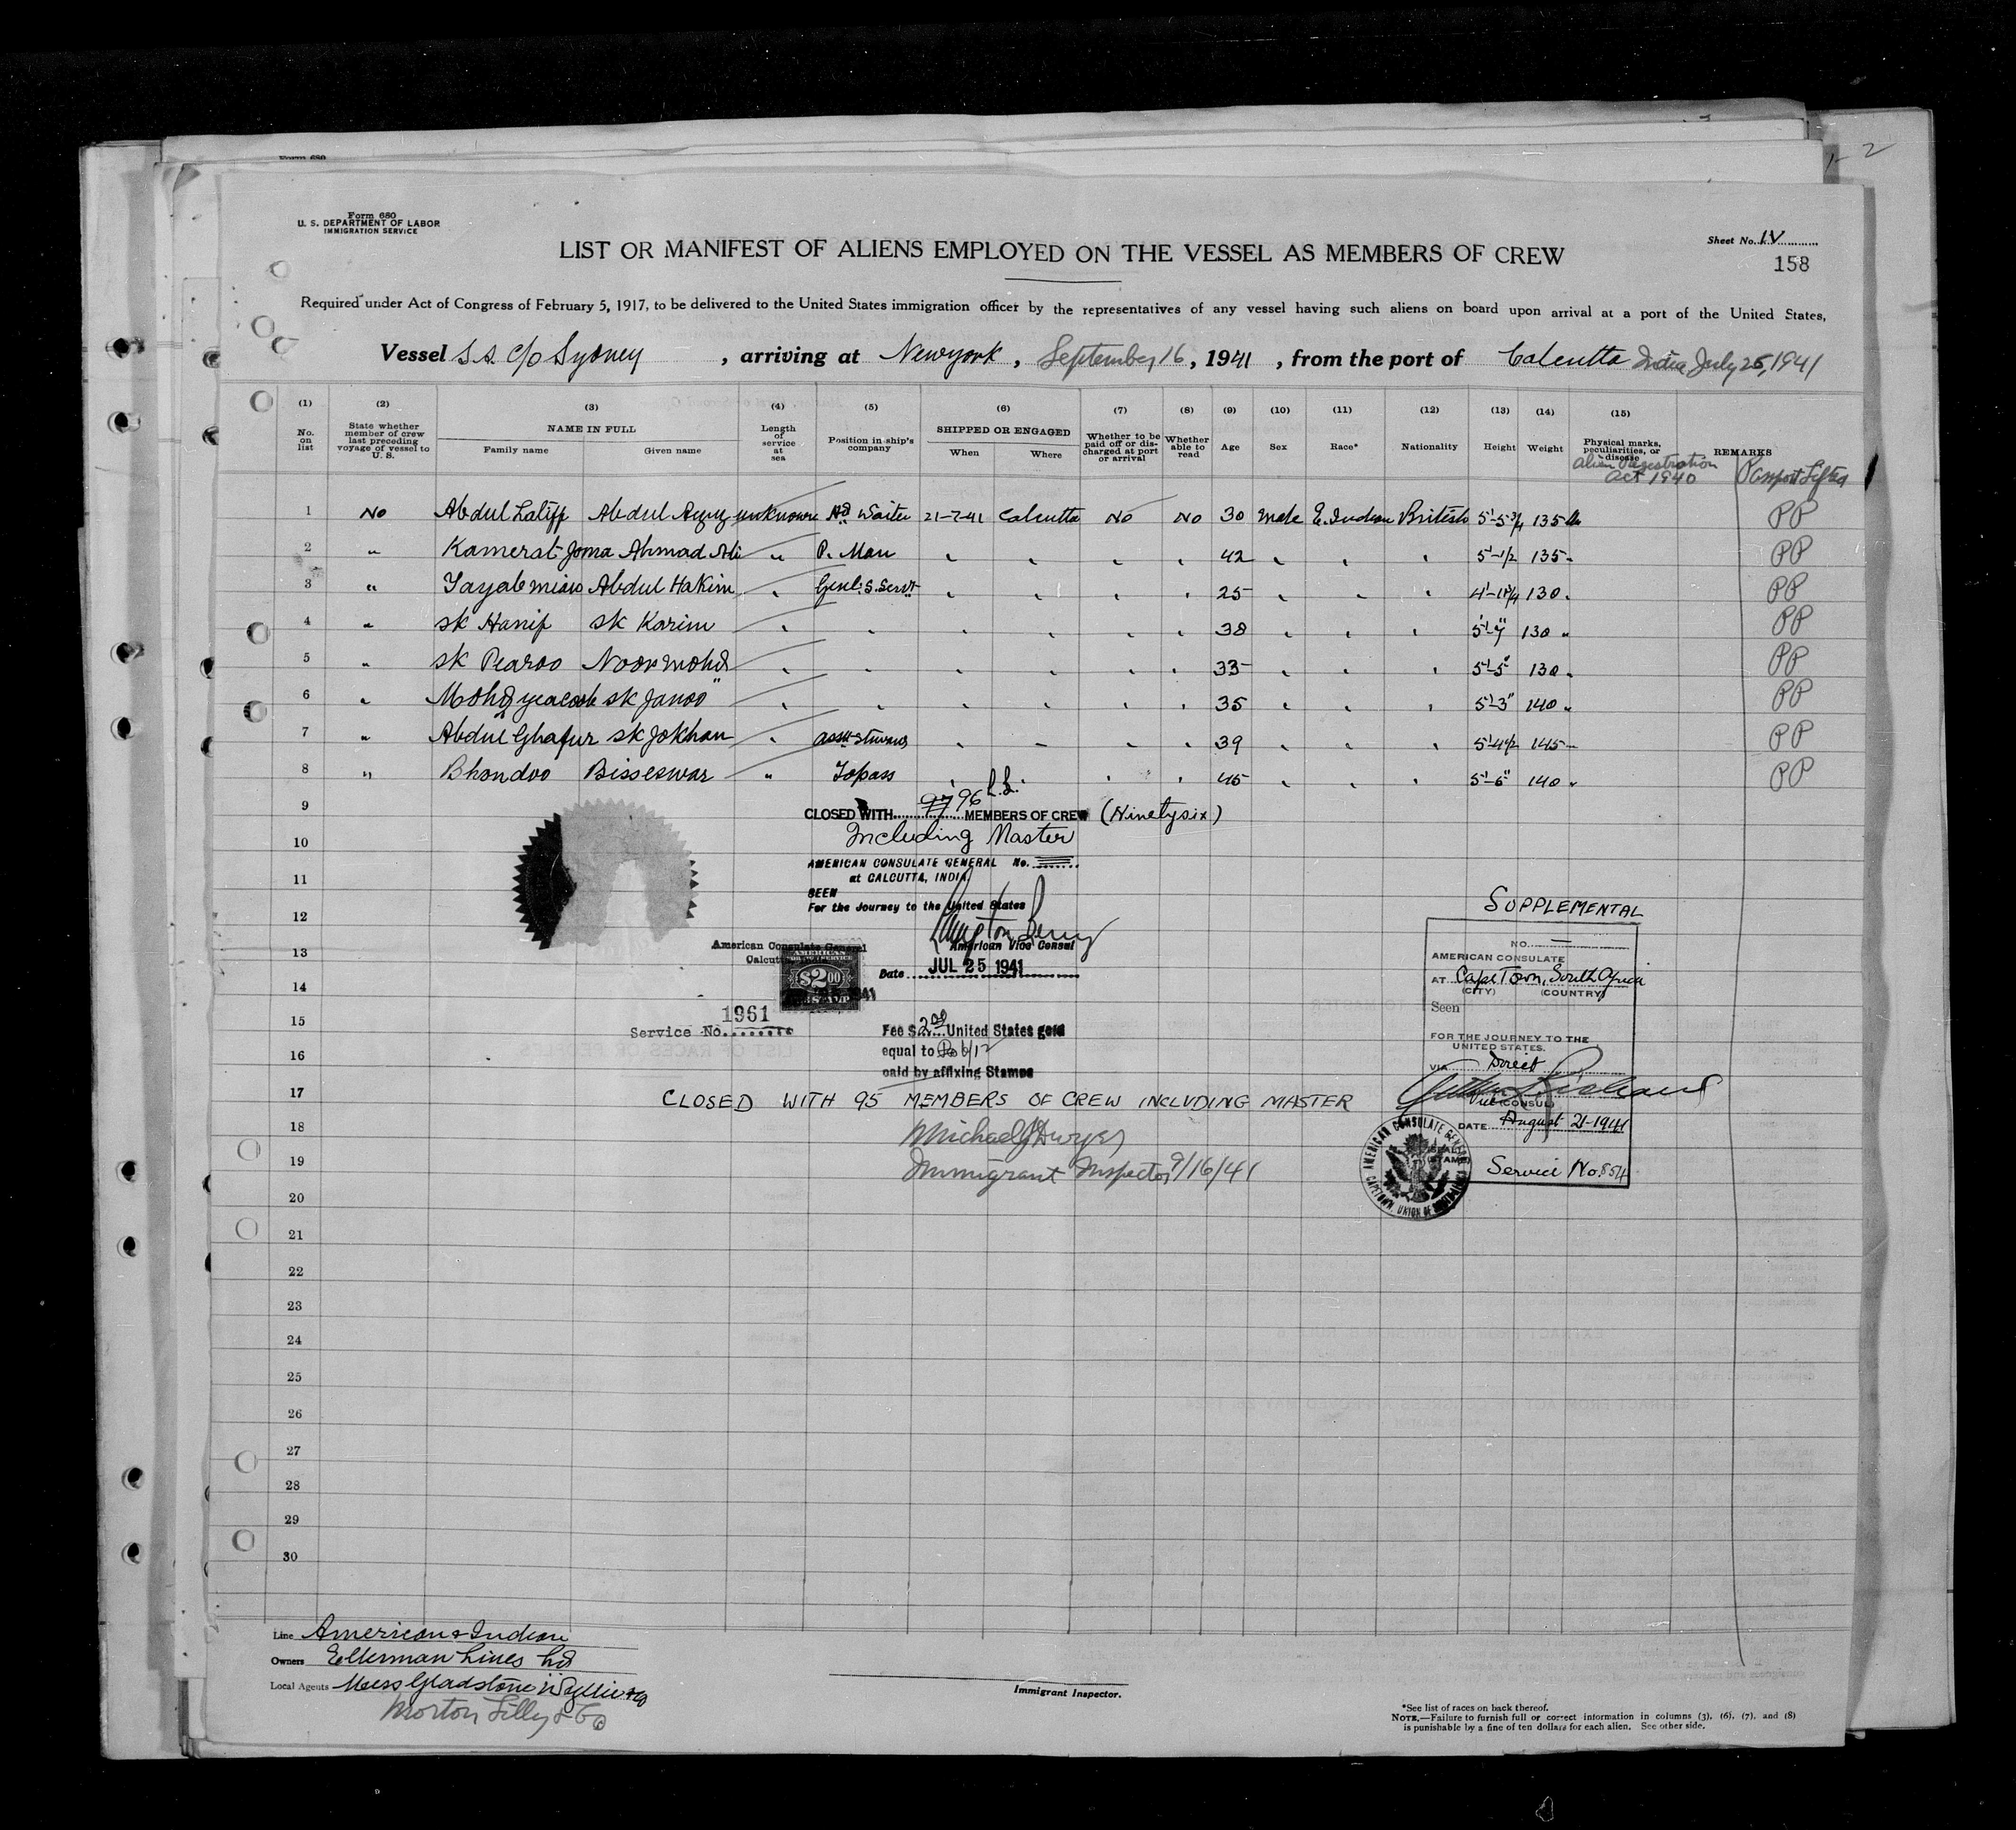 Form 680
Form 680
U. S. DEPARTMENT OF LABOR
IMMIGRATION SERVICE
1-2
Sheet No. IV
158
LIST OR MANIFEST OF ALIENS EMPLOYED ON THE VESSEL AS MEMBERS OF CREW
Required under Act of Congress of February 5, 1917, to be delivered to the United States immigration officer by the representatives of any vessel having such aliens on board upon arrival at a port of the United States,
Vessel S.S. C/O Sydney, arriving at Newyork, September 16, 1941, from the port of Calcutta India July 25, 1941
(1) (2) (3) (4) (5) (6) (7) (8) (9) (10) (11) (12) (13) (14) (15)
No. on list
State whether member of crew last preceding voyage of vessel to U. S.
NAME IN FULL
Family name Given name
Length of service at sea
Position in ship's company
SHIPPED OR ENGAGED
When Where
Whether to be paid off or discharged at port or arrival
Whether able to read
Age Sex Race* Nationality Height Weight
Physical marks, peculiarities, or disease
REMARKS
Alien Registration Act 1940
Passport Lifted
1 No Abdul Latiff Abdul unknown Hd Waiter 21-7-41 Calcutta No No 30 Male E. Indian British 5'-5 3/4 135 lbs PP
2 " Kamerat Joma Ahmad Ali " P. Man " " " " 42 " " " 5'-1/2 135 " PP
3 " Abdul Hakim " Genl. S. Servt " " " " 25 " " " 130 " PP
4 " SK Hanif SK Karim " " " " " " 38 " " " 130 " PP
5 " SK Pearoo Noor Mohd " " " " " " 33 " " " 5'-5" 130 " PP
6 " Mohd Yeacoob SK Janoo " " " " " " 35 " " " 5'-3" 140 " PP
7 " Abdul Ghafur SK Jokhan " Asst Steward " " " " 39 " " " 5'-4 1/2 145 " PP
8 " Bhondoo Bisseswar " Topass " " " " 45 " " " 5'-6" 140 " PP
9
10
11
12
13
14
15
16
17
18
19
20
21
22
23
24
25
26
27
28
29
30
CLOSED WITH 97 96 MEMBERS OF CREW (Ninetysix)
Including Master
AMERICAN CONSULATE GENERAL No.
at CALCUTTA, INDIA
SEEN
For the Journey to the United States
American Vice Consul
Date JUL 25 1941
American Consulate General
Calcutta
AMERICAN
$2.00
1961
Service No.
Fee $ 2.00 United States gold
equal to Rs 6/12
paid by affixing Stamps
CLOSED WITH 95 MEMBERS OF CREW INCLUDING MASTER
Michael J Dwyer
Immigrant Inspector 9/16/41
SUPPLEMENTAL
NO. —
AMERICAN CONSULATE
AT Cape Town, South Africa
(CITY) (COUNTRY)
Seen
FOR THE JOURNEY TO THE
UNITED STATES.
VIA Direct
Vice CONSUL
DATE August 21-1941
Service No. 854
AMERICAN CONSULATE GENERAL CAPETOWN, UNION OF
Line American & Indian
Owners Ellerman Lines Ltd
Local Agents Mess Gladstone Wyllie & Co
Morton Lilly & Co
Immigrant Inspector.
*See list of races on back thereof.
NOTE.—Failure to furnish full or correct information in columns (3), (6), (7), and (8)
is punishable by a fine of ten dollars for each alien. See other side.